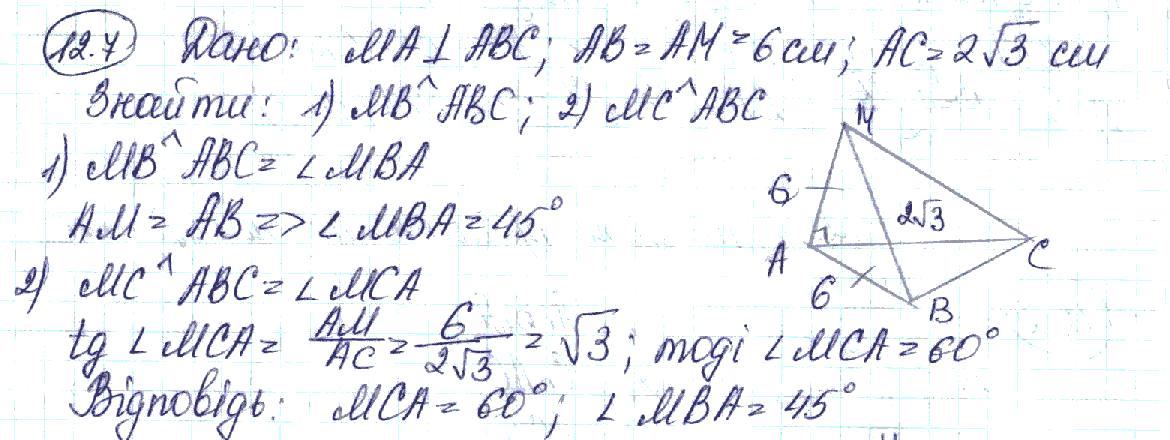 12.7 Дано: MA⊥ABC; AB=AM=6см; AC=2√3 см
Знайти: 1) MB^ABC; 2) MC^ABC
1) MB^ABC=∠MBA
AM=AB=>∠MBA=45°
2) MC^ABC=∠MCA
tg∠MCA=AM/AC=6/2√3=√3; тоді ∠MCA=60°
Відповідь: MCA=60°; ∠MBA=45°
M
6
2√3
A
C
6
B